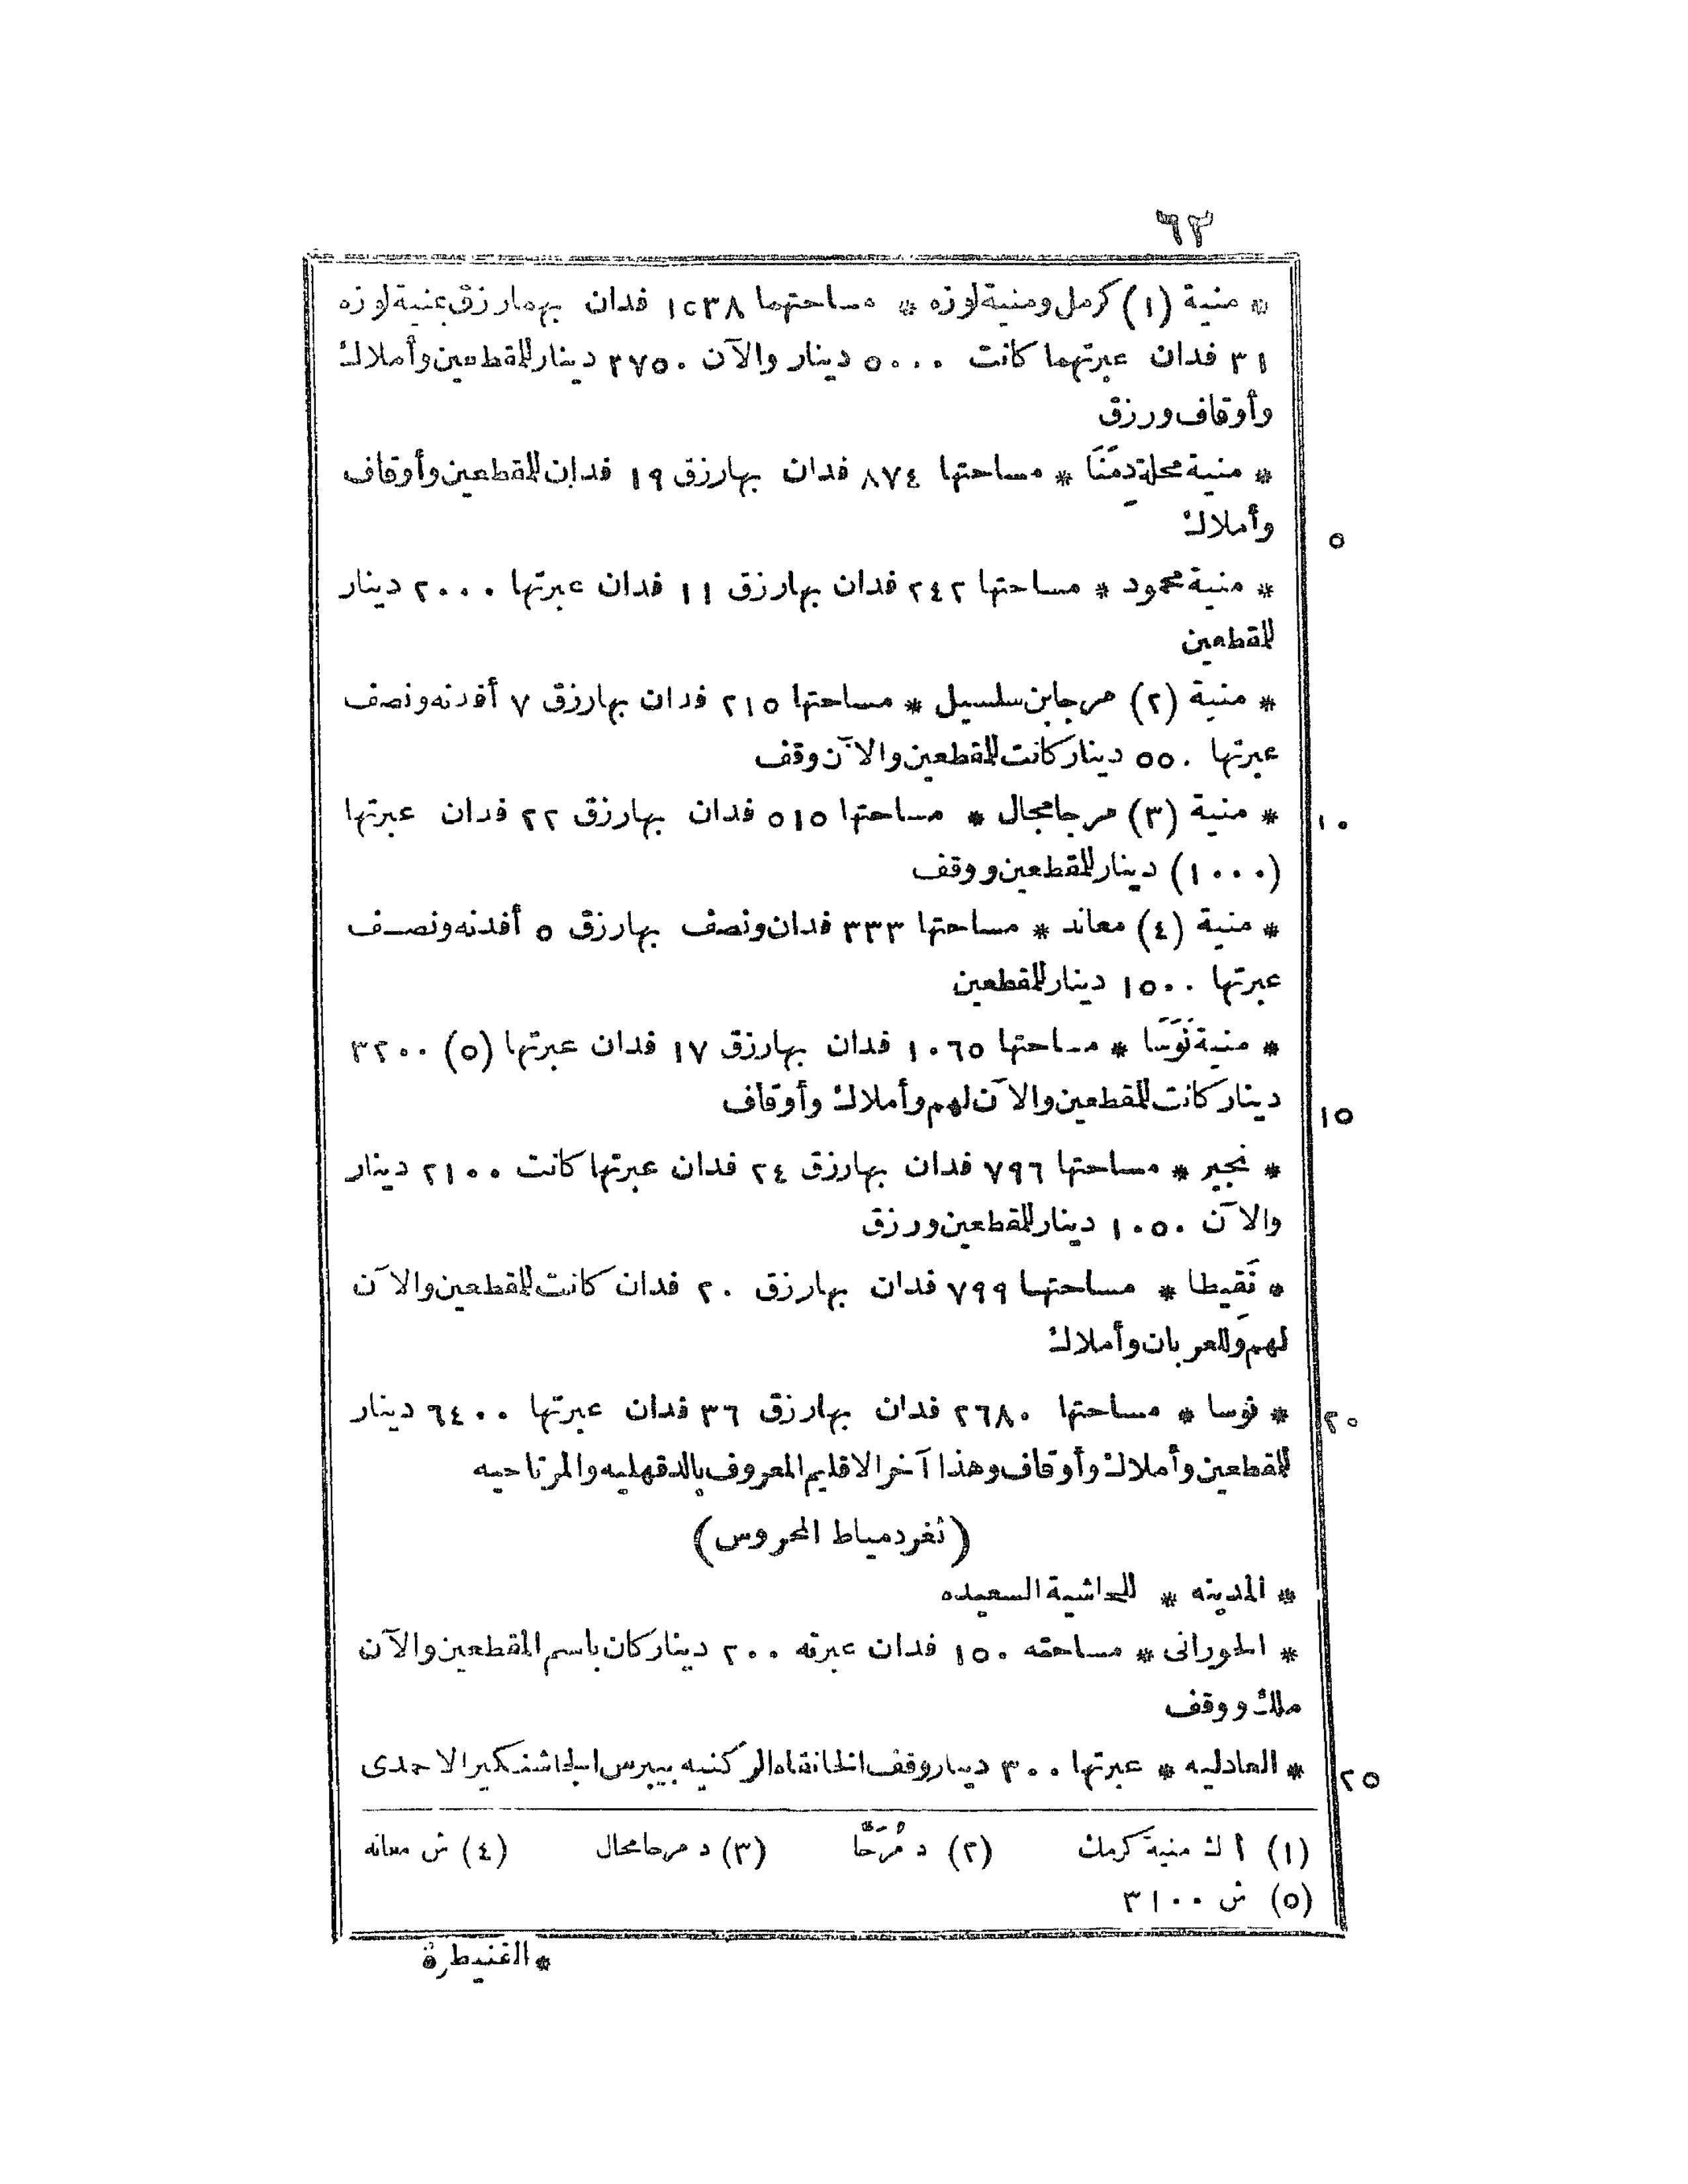 ٦٣
* منية (١) كرمل ومنية لوزه * مساحتهما ١٢٣٨ فدان بهما رزق بمنية لوزه
٣١ فدان عبرتهما كانت ٥٠٠٠ دينار والآن ٢٧٥٠ دينار للمقطعين وأملاك
وأوقاف ورزق
* منية محلة دِمَنَا * مساحتها ٨٧٤ فدان بها رزق ١٩ فدان للمقطعين وأوقاف
وأملاك
٥
* منية محمود * مساحتها ٢٤٢ فدان بها رزق ١١ فدان عبرتها ٢٠٠٠ دينار
للمقطعين
* منية (٢) مرجا بن سلسيل * مساحتها ٢١٥ فدان بها رزق ٧ أفدنه ونصف
عبرتها ٥٥٠ دينار كانت للمقطعين والآن وقف
* منية (٣) مرجا مجال * مساحتها ٥١٥ فدان بها رزق ٢٢ فدان عبرتها
١٠
(١٠٠٠) دينار للمقطعين ووقف
* منية (٤) معاند * مساحتها ٣٣٣ فدان ونصف بها رزق ٥ أفدنه ونصف
عبرتها ١٥٠٠ دينار للمقطعين
* منية نَوَسَا * مساحتها ١٠٦٥ فدان بها رزق ١٧ فدان عبرتها (٥) ٣٢٠٠
دينار كانت للمقطعين والآن لهم وأملاك وأوقاف
١٥
* نجير * مساحتها ٧٩٦ فدان بها رزق ٢٤ فدان عبرتها كانت ٢١٠٠ دينار
والآن ١٠٥٠ دينار للمقطعين ورزق
* نَقِيطا * مساحتها ٧٩٩ فدان بها رزق ٢٠ فدان كانت للمقطعين والآن
لهم وللعربان وأملاك
* نوسا * مساحتها ٢٦٨٠ فدان بها رزق ٣٦ فدان عبرتها ٦٤٠٠ دينار
٢٠
للمقطعين وأملاك وأوقاف وهذا آخر الاقليم المعروف بالدقهليه والمرتاحيه
(ثغر دمياط المحروس)
* المدينه * للحاشية السعيده
* الحورانى * مساحته ١٥٠ فدان عبرته ٢٠٠ دينار كان باسم المقطعين والآن
ملك ووقف
* العادليه * عبرتها ٣٠٠ دينار وقف الخانقاه الركنيه بيبرس الجاشنكير الاحمدى
٢٥
(١) أ ك منية كرمك (٢) د مُرَحَّا (٣) د مرحا محال (٤) ش معانه
(٥) ش ٣١٠٠
* القنيطرة